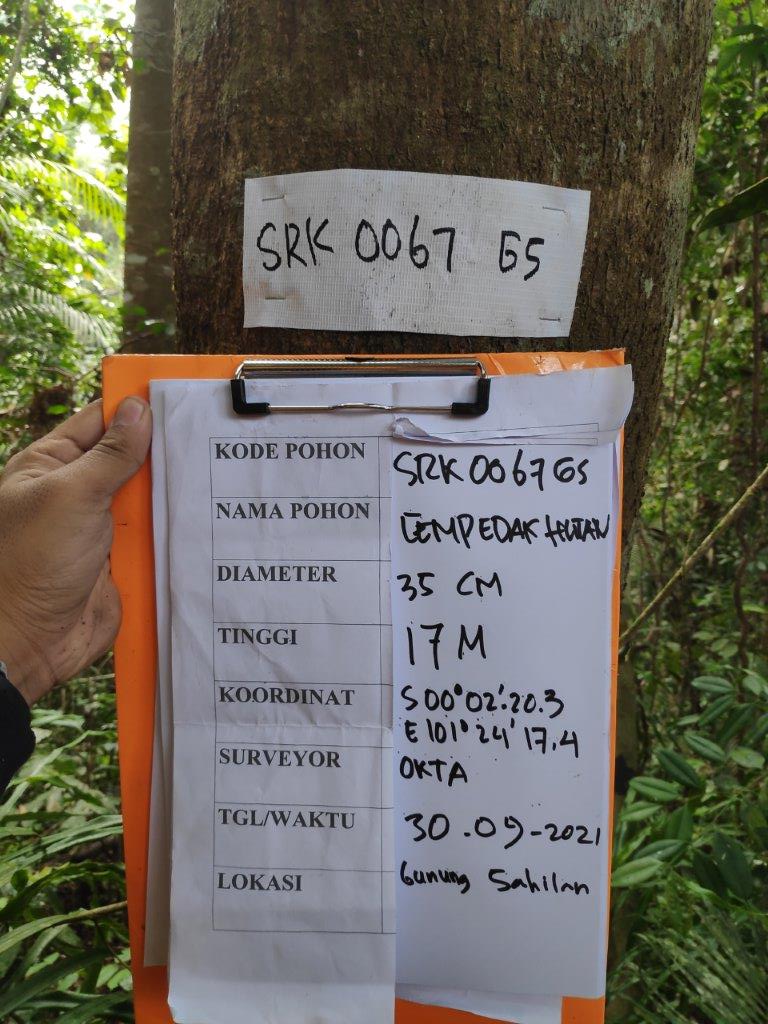 SRK 0067 GS
KODE POHON SRK 0067 GS
NAMA POHON CEMPEDAK HUTAN
DIAMETER 35 CM
TINGGI 17 M
KOORDINAT S 00° 02'.20.3
E 101° 24' 17.4
SURVEYOR OKTA
TGL/WAKTU 30.09-2021
LOKASI Gunung Sahilan